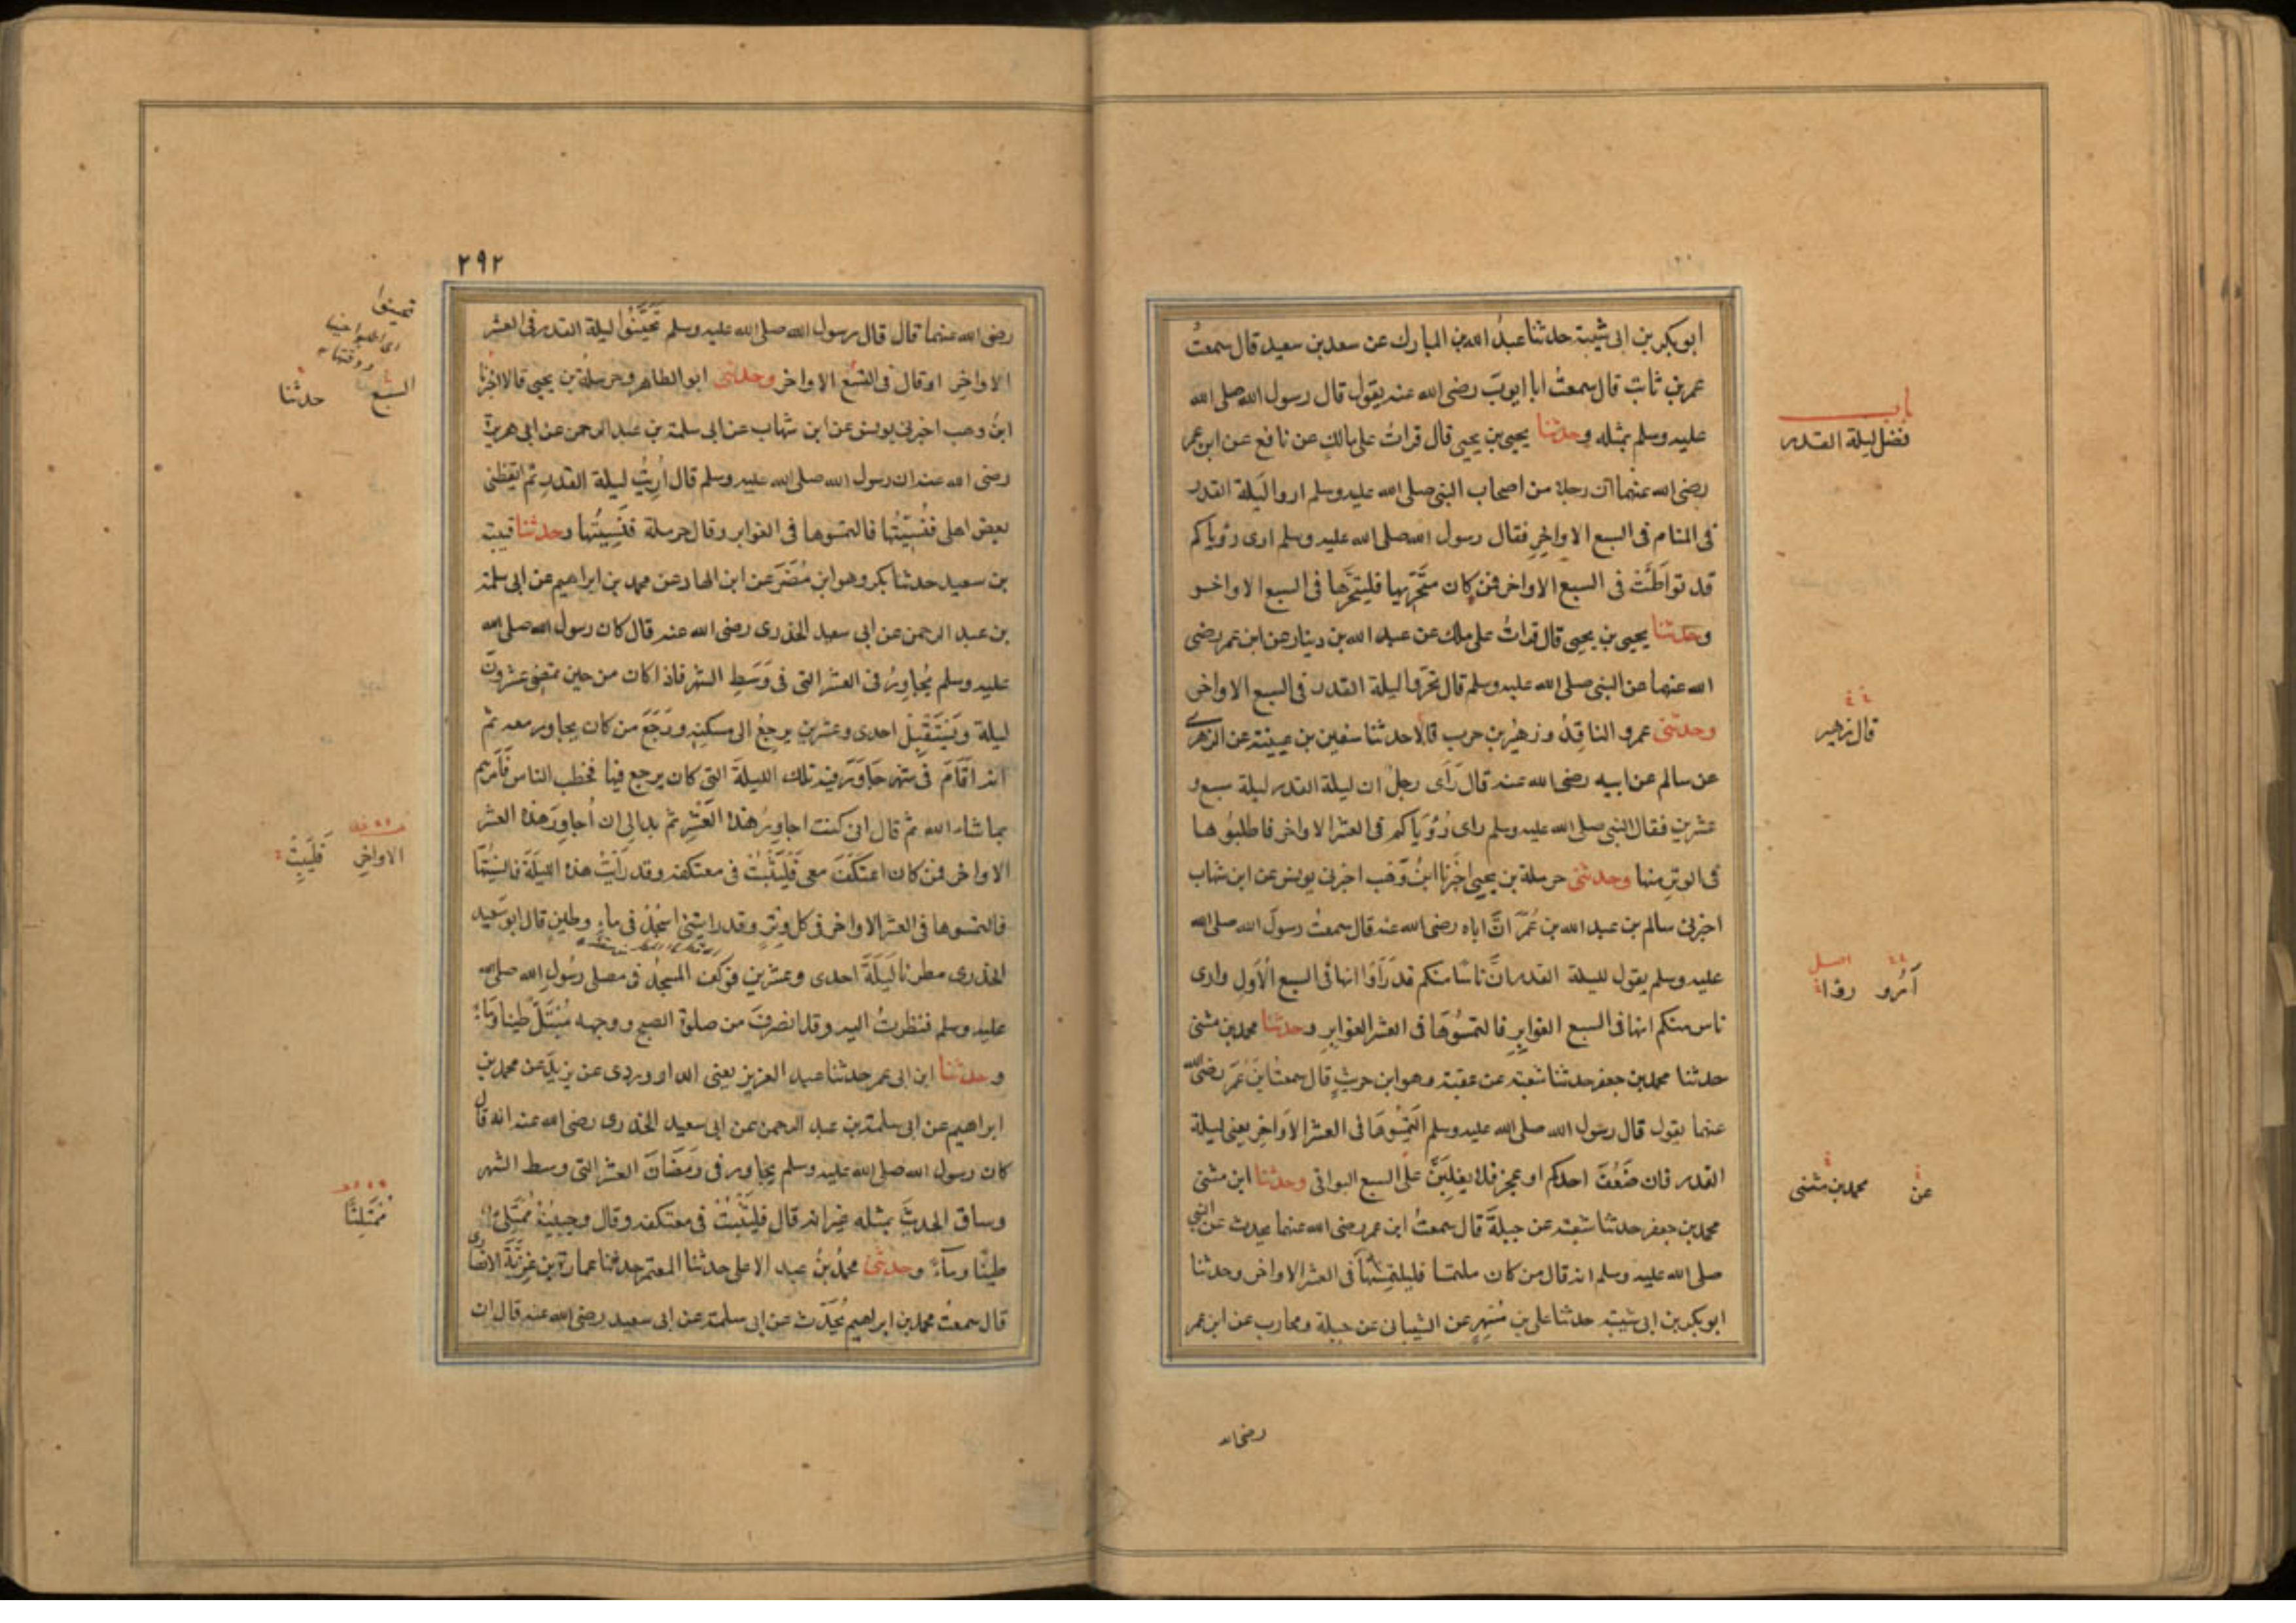 ابوبكر بن ابى شيبة حدثنا عبدُ الله بن المبارك عن سعد بن سعيد قال سمعتُ
عمر بن ثابت قال سمعتُ ابا ايوبَ رضى الله عنه يقول قال رسول الله صلى الله
باب
فضل ليلة القدر
عليه وسلم بمثله وحدثنا يحيى بن يحيى قال قراتُ على مالك عن نافع عن ابن عمر
رضى الله عنهما ان رجلا من اصحاب النبى صلى الله عليه وسلم اروا ليلة القدر
فى المنام فى السبع الاواخرِ فقال رسول الله صلى الله عليه وسلم ارى رؤياكم
قد تواطَئَتْ فى السبع الاواخر فمن كان متحَرِّيها فليتحَرَّها فى السبع الاواخر
وحدثنا يحيى بن يحيى قال قراتُ على ملك عن عبد الله بن دينار عن ابن عمر رضى
الله عنهما عن النبى صلى الله عليه وسلم قال تحرَّوا ليلة القدر فى السبع الاواخر
وحدثنى عمرو الناقدُ وزهيرُ بن حرب قالا حدثنا سفين بن عيينة عن الزهرى
قال زهير
عن سالم عن ابيه رضى الله عنه قال رَأى رجلٌ ان ليلة القدر ليلة سبع و
عشرين فقال النبى صلى الله عليه وسلم راى رُؤيَاكم فى العشر الاواخر فاطلبُوها
فى الوترِ منها وحدثنى حرملة بن يحيى اخبَرنا ابنُ وَهْب اخبرنى يونس عن ابن شهاب
اخبرنى سالم بن عبد الله بن عُمَرَ انَّ اباه رضى الله عنه قال سمعتُ رسولَ الله صلى الله
عليه وسلم يقول لليلة القدر انَّ ناسًا منكم قد رَاَوْا انها فى السبع الْاَوَلِ وارى
اصل
ناس منكم انها فى السبع الغوابِرِ فالتمسُوهَا فى العشر الغوابِرِ وحدثنا محمد بن مثنى
حدثنا محمد بن جعفر حدثنا شعبة عن عقبة وهو ابن حريثٍ قال سمعتُ ابنَ عُمَرَ رضى الله
عنهما يقول قال رسول الله صلى الله عليه وسلم الْتَمِسُوهَا فى العشر الاَواخِرِ يعنى ليلة
القدر فان ضَعُفَ احدكم او عجز فلا يغلبَنَّ على السبع البواقى وحدثنا ابن مثنى
محمد بن مثنى عن
محمد بن جعفر حدثنا شعبة عن جبلةَ قال سمعتُ ابن عمر رضى الله عنهما يحدث عن النبى
صلى الله عليه وسلم انه قال من كان ملتمسا فليلتمسْهَا فى العشر الاواخر وحدثنا
ابوبكر بن ابى شيبة حدثنا على بن مُسْهِرٍ عن الشيبانى عن جبلة ومحارب عن ابن عمر
رضى الله
٢٩٢
رضى الله عنهما قال قال رسول الله صلى الله عليه وسلم تَحَيَّنُوا ليلة القدر فى العشر
تحينوا
الاواخرِ او قال فى التسْع الاواخر وحدثنى ابو الطاهر وحرملةُ بن يحيى قالا اخبرنا
السبع حدثنا
ابنُ وهب اخبرنى يونس عن ابن شهاب عن ابى سلمة بن عبد الرحمن عن ابى هريرة
رضى الله عنه ان رسول الله صلى الله عليه وسلم قال اُرِيتُ ليلة القدرِ ثم ايقظنى
بعض اهلى فنُسِّيتُها فالتمسوها فى الغوابر وقال حرملة فَنَسِيتُها وحدثنا قتيبة
بن سعيد حدثنا بكر وهو ابن مُضَرَ عن ابن الهاد عن محمد بن ابراهيم عن ابى سلمة
بن عبد الرحمن عن ابى سعيد الخدرى رضى الله عنه قال كان رسول الله صلى الله
عليه وسلم يُجاوِرُ فى العشر التى فى وَسَطِ الشهر فاذا كان من حين تمضِى عشرونَ
ليلة ويَسْتَقْبِلُ احدى وعشرين يرجعُ الى مسكنِه ورَجَعَ من كان يجاور معه ثم
انه اَقَامَ فى شهر جَاوَرَ فيه تلك الليلةَ التى كان يرجع فيها فخطب الناس فاَمَرهم
بما شاء الله ثم قال انى كنت اجاورُ هذه العَشْرِ ثم بدا لى ان اُجاوِرَ هذه العشر
الاواخرِ فَلْيَبِتْ
الاواخر فمن كان اعتكَفَ معى فَلْيَثْبُتْ فى معتكفه وقد رَاَيْتُ هذه الليلَةَ فاُنسِيتُهَا
فالتمسوها فى العشر الاواخر فى كل وِتْرٍ وقد رايتنى اسْجُدُ فى ماءٍ وطينٍ قال ابو سَعيد
الخدرى مطرنا لَيلَةَ احدى وعشرين فوكف المسجدُ فى مصلى رسُول الله صلى الله
عليه وسلم فنظرتُ اليه وقد انصرفَ من صلوة الصبح ووجهه مُبْتَلٌّ طينا ومَاءً
وحدثنا ابن ابى عمر حدثنا عبد العزيز يعنى الدراوردى عن يزيدَ عن محمد بن
ابراهيم عن ابى سلمة بن عبد الرحمن عن ابى سعيد الخدرى رضى الله عنه انه قال
كان رسول الله صلى الله عليه وسلم يجاور فى رَمَضَانَ العشر التى وسط الشهر
وساق الحديثَ بمثله غير انه قال فليَثْبُتْ فى معتكفه وقال وجبينُهُ مُمْتَلِئٌ
مُمْتَلِئًا
طينًا وماءً وحدثنى محمدُ بنُ عبد الاعلى حدثنا المعتمر حدثنا عمارة بن غزِيَّةَ الانصارى
قال سمعتُ محمد بن ابراهيم يُحَدِّث عن ابى سلمة عن ابى سعيد رضى الله عنه قال ان